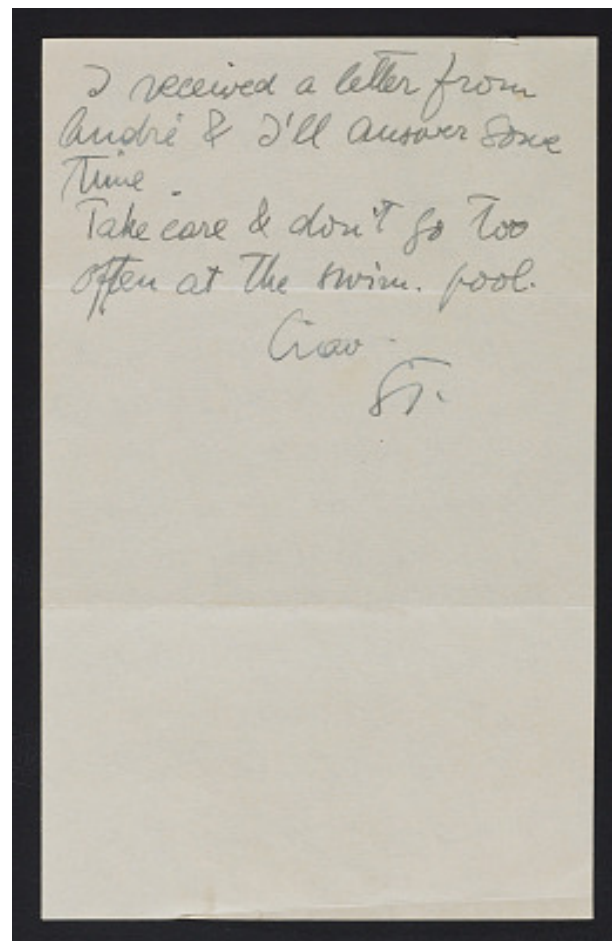 I received a letter from
André & I'll answer some
time.
Take care & don't go too
often at the swim. pool.
Ciao -
ST.